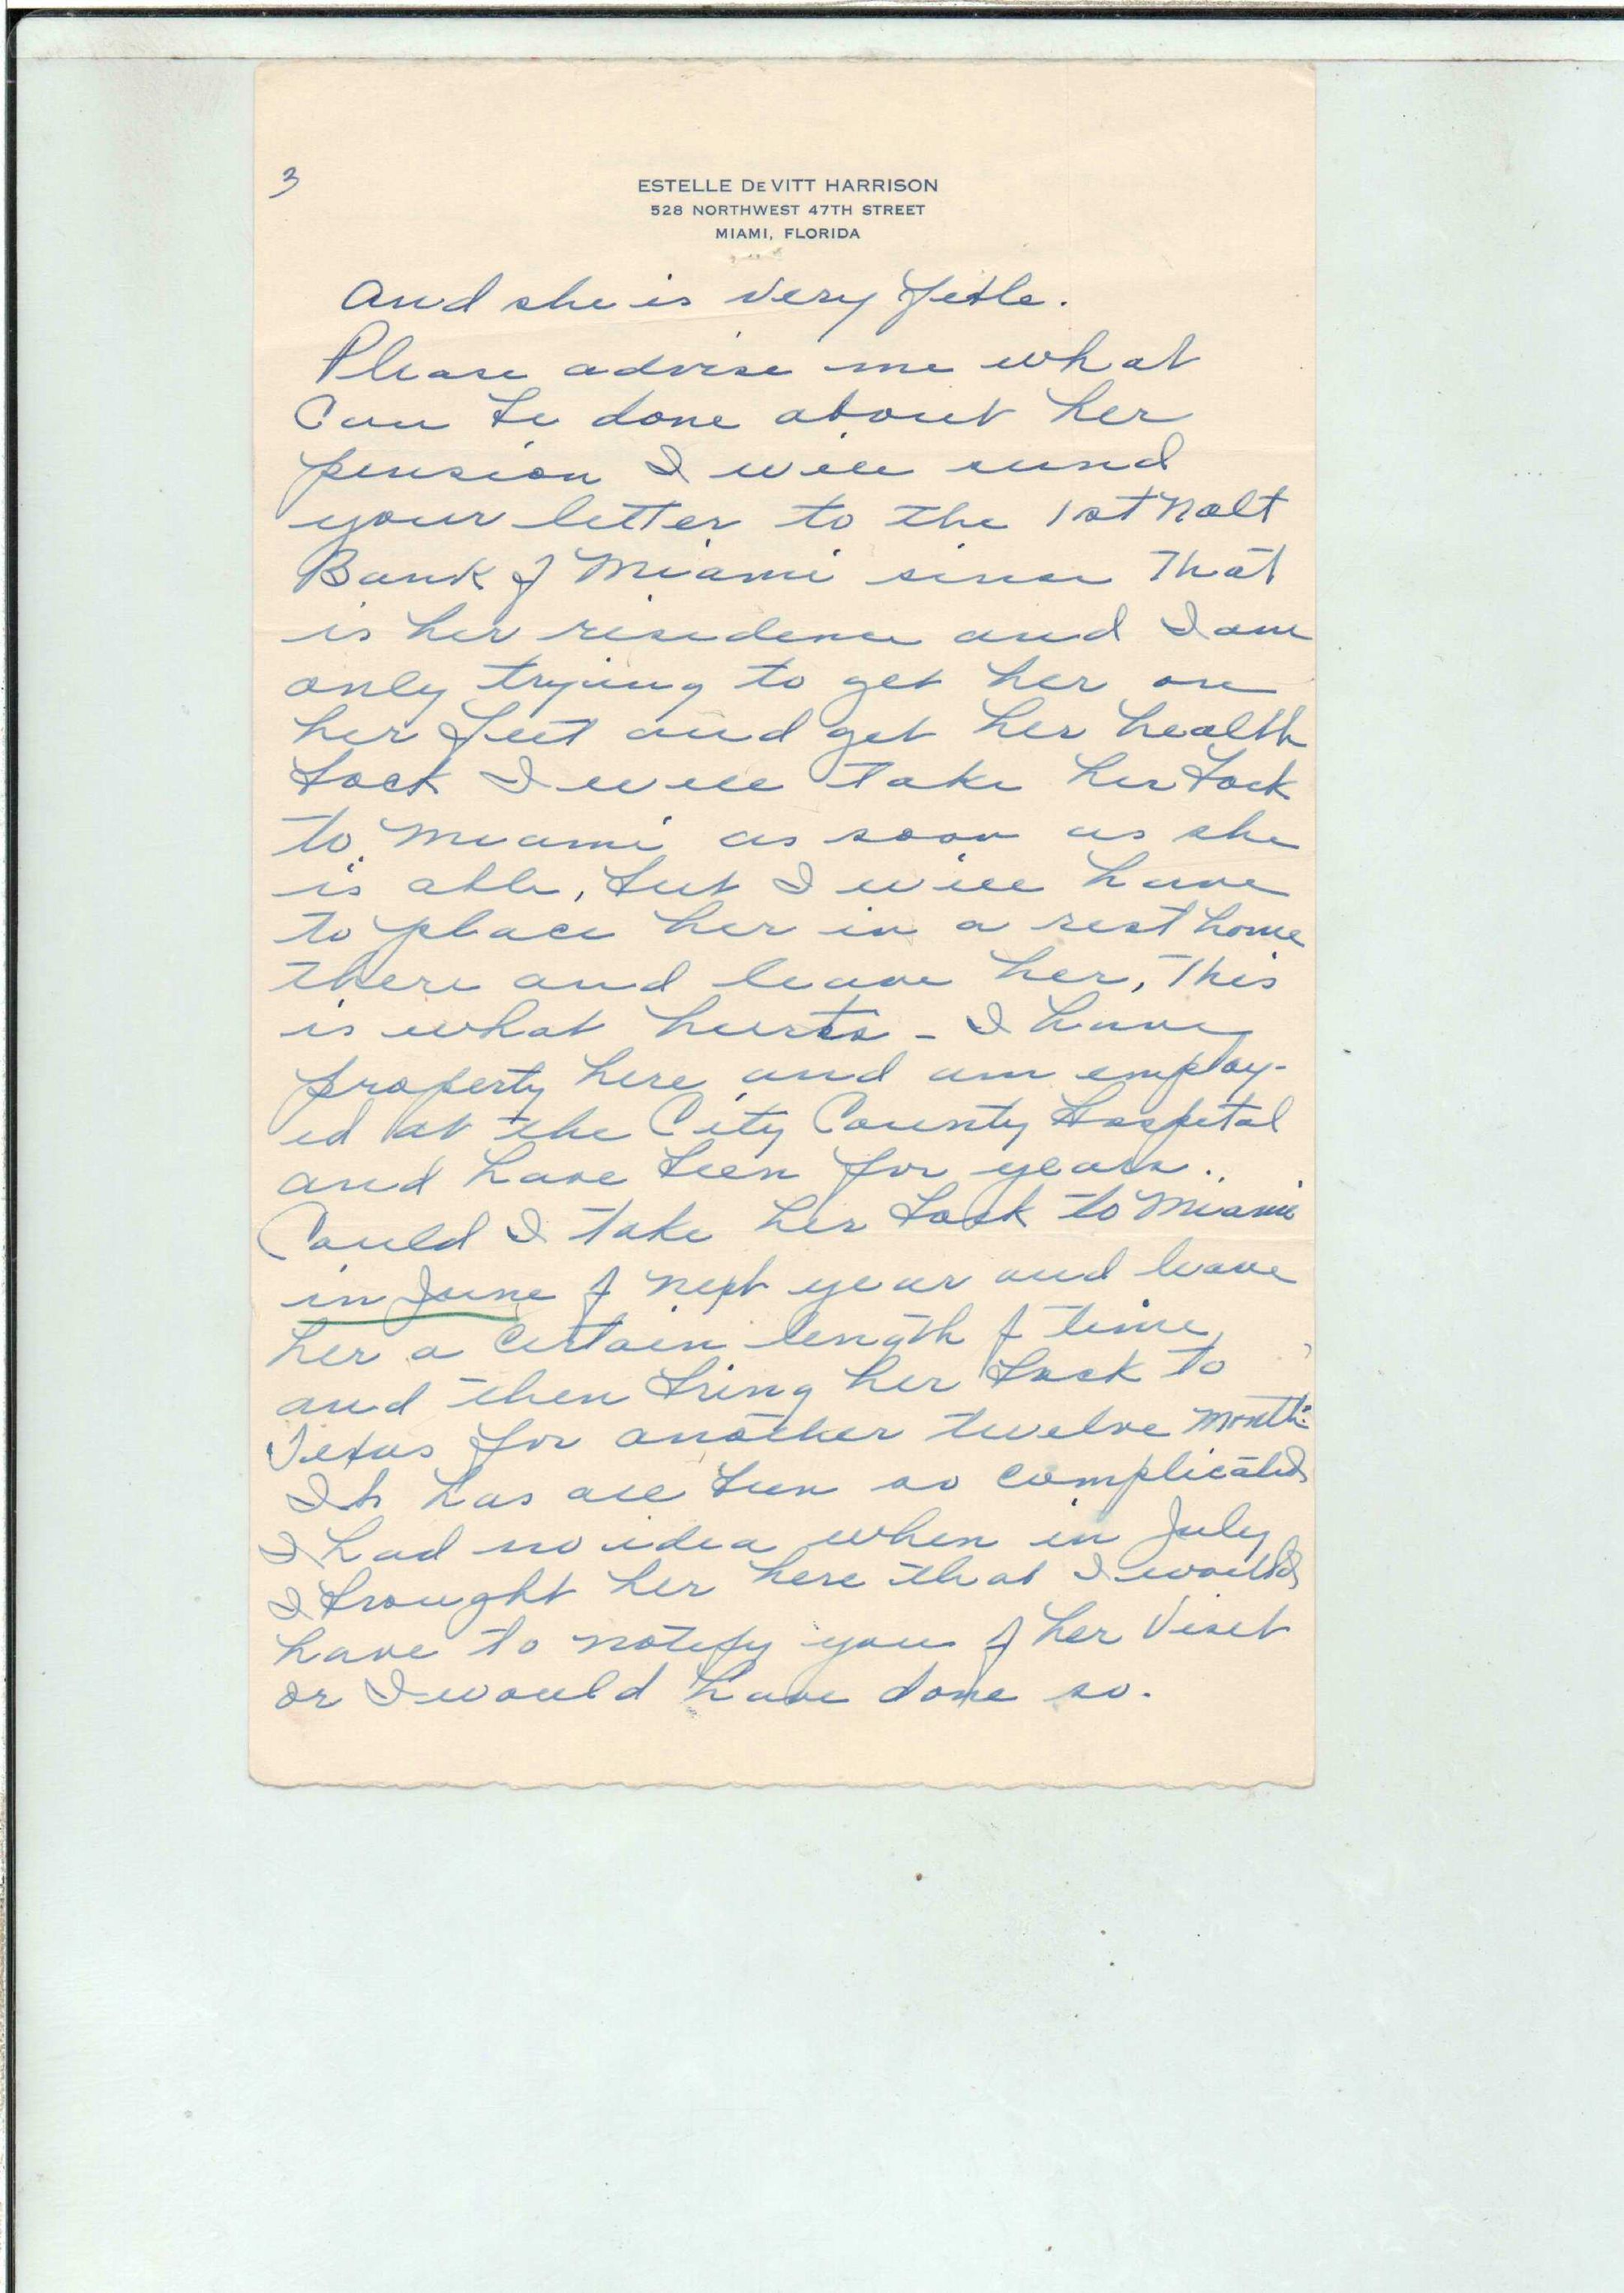 3
ESTELLE DEVITT HARRISON
528 NORTHWEST 47TH STREET
MIAMI, FLORIDA
and she is very
Please advise me what
Can be done about her
pension I will send
your letter to the 1st Natl
Bank of Miami since That
is her residence and I am
only trying to get her on
her feet and get her health
back I will take her back
to Miami as soon as she
is able, but I will have
to place her in a rest home
there and leave her, This
is what hurts - I have
property here and am employ-
ed at the City County Hospital
and have been for years.
Could I take her back to Miami
in June of next year and leave
her a certain length of time,
and then bring her back to
Texas for another twelve months
It has all been so complicated
I had no idea when in July
I brought her here that I would
have to notify you of her Visit
or I would have done so.